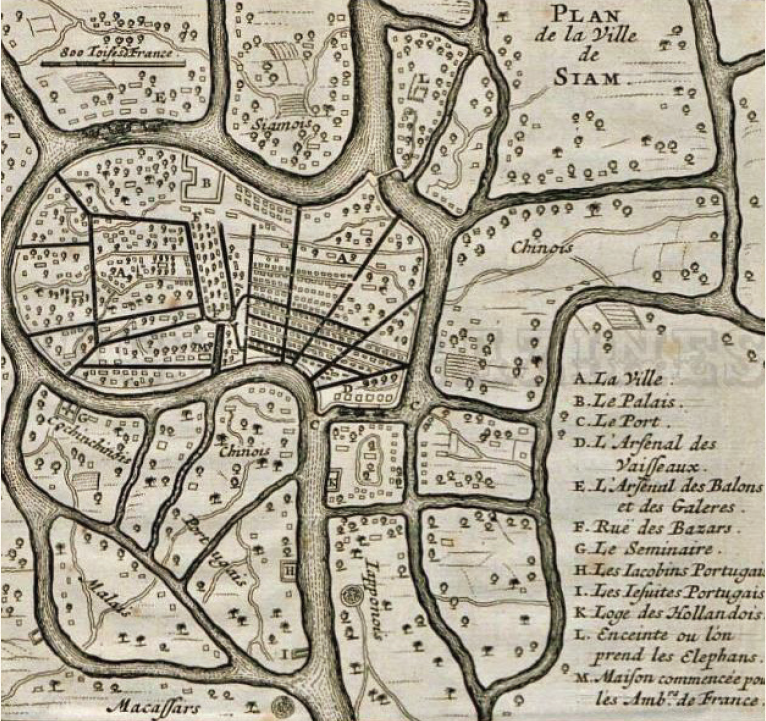 PLAN
de la Ville
de
SIAM
800 Toises France.
E
L
Siamois
B
Chinois
A
A
F
M
D
C
C
G
Cochinchinois
Chinois
K
Portugais
H
Malais
Iapponois
I
Macassars
A. La Ville.
B. Le Palais.
C. Le Port.
D. L'Arſenal des
Vaiſſeaux.
E. L'Arſenal des Balons
et des Galeres.
F. Ruë des Bazars.
G. Le Seminaire.
H. Les Iacobins Portugai
I. Les Ieſuites Portugais
K. Loge des Hollandois.
L. Enceinte ou l'on
prend les Elephans.
M. Maiſon commencée pou
les Amb.rs de France